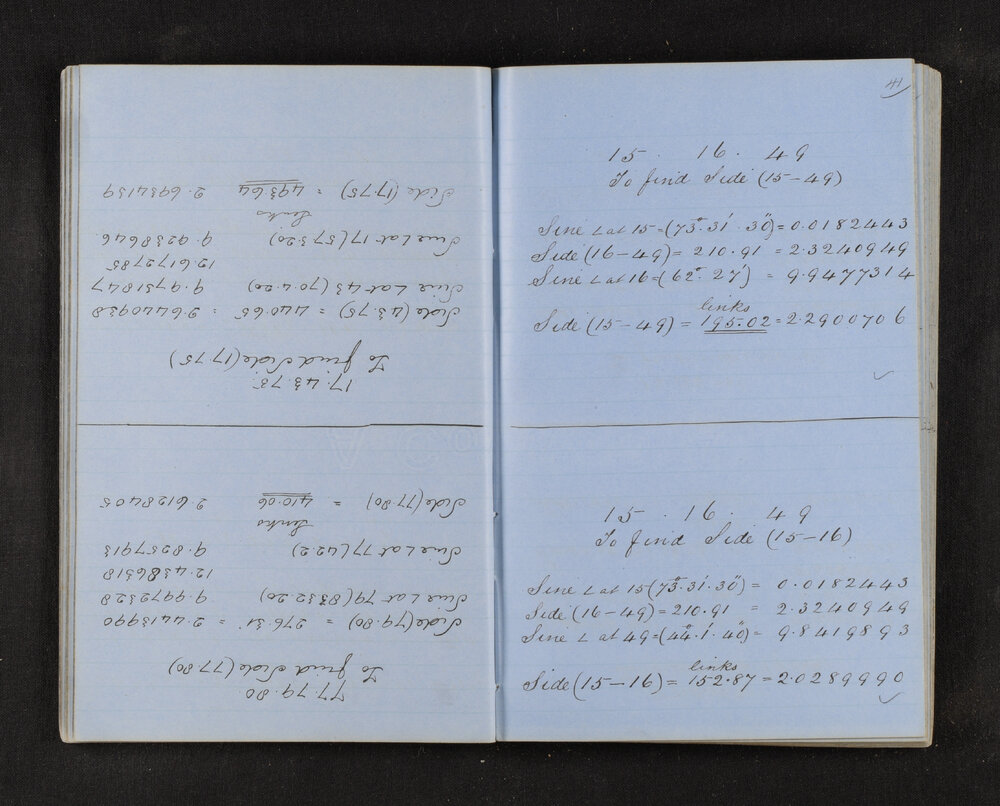 77.79.80
To find Side (77.80)
Side (79.80) = 276.31 = 2.4413990
Sine ∠ at 79 (83°.32.20) 9.9972328
12.4386318
Sine ∠ at 77 (42.2) 9.8257913
links
Side (77.80) = 410.06 2.6128405
17.43.75
To find Side (17.75)
Side (43.75) = 440.65 = 2.6440938
Sine ∠ at 43 (70.4.20) 9.9731847
12.6172785
Sine ∠ at 17 (57.3.20) 9.9238646
links
Side (17.75) = 493.64 2.6934139
41
15 . 16 . 49
To find Side (15-49)
Sine ∠ at 15 = (73°. 31'. 30") = 0.0182443
Side (16-49) = 210.91 = 2.3240949
Sine ∠ at 16 = (62°. 27') = 9.9477314
links
Side (15-49) = 195.02 = 2.2900706
15 . 16 . 49
To find Side (15-16)
Sine ∠ at 15 (73°. 31'. 30") = 0.0182443
Side (16-49) = 210.91 = 2.3240949
Sine ∠ at 49 = (44°. 1'. 40") = 9.8419893
links
Side (15-16) = 152.87 = 2.0289990